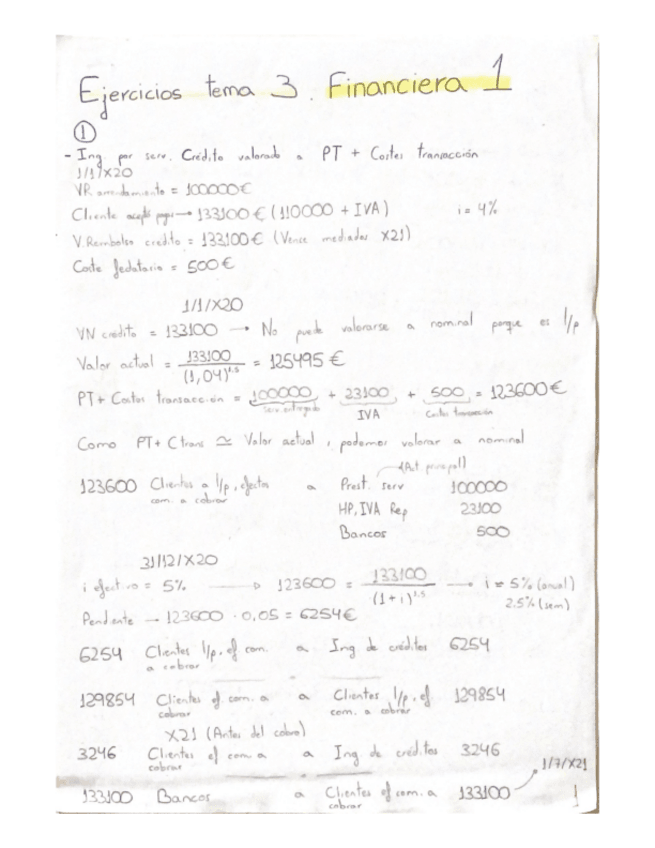 Ejercicios tema 3. Financiera 1
①
- Ing por serv. Crédito valorado a PT + Costes transacción
1/1/X20
VR arrendamiento = 100000€
Cliente acepta pagar → 133100 € (110000 + IVA) i = 4%
V. Reembolso crédito = 133100 € (Vence mediados X21)
Coste fedatario = 500 €
1/1/X20
VN crédito = 133100 → No puede valorarse a nominal porque es l/p
Valor actual = 133100 / (1,04)^1.5 = 125495 €
PT + Costes transacción = 100000 + 23100 + 500 = 123600 €
serv entregado IVA Costes transacción
Como PT + Ctrans ≃ Valor actual, podemos valorar a nominal
(Act. principal)
123600 Clientes a l/p, efectos com. a cobrar a Prest. serv 100000
HP, IVA Rep 23100
Bancos 500
31/12/X20
i efectivo = 5% → 123600 = 133100 / (1+i)^1.5 → i = 5% (anual)
2.5% (sem)
Pendiente → 123600 · 0,05 = 6254 €
6254 Clientes l/p, ef com. a cobrar a Ing de créditos 6254
129854 Clientes ef com. a cobrar a Clientes l/p, ef com. a cobrar 129854
X21 (Antes del cobro)
3246 Clientes ef com. a cobrar a Ing. de créditos 3246
1/7/X21
133100 Bancos a Clientes ef com. a cobrar 133100
1